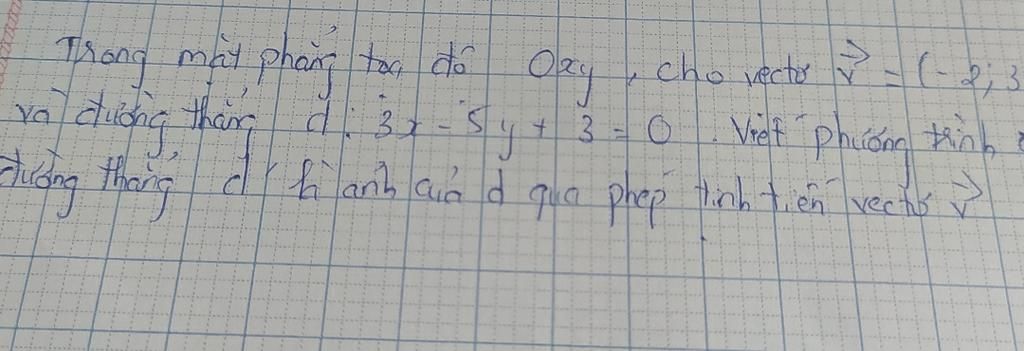 Trong mặt phẳng tọa độ Oxy, cho vectơ v = (-2; 3
và đường thẳng d: 3x - 5y + 3 = 0. Viết phương trình
đường thẳng d' là ảnh của d qua phép tịnh tiến vectơ v